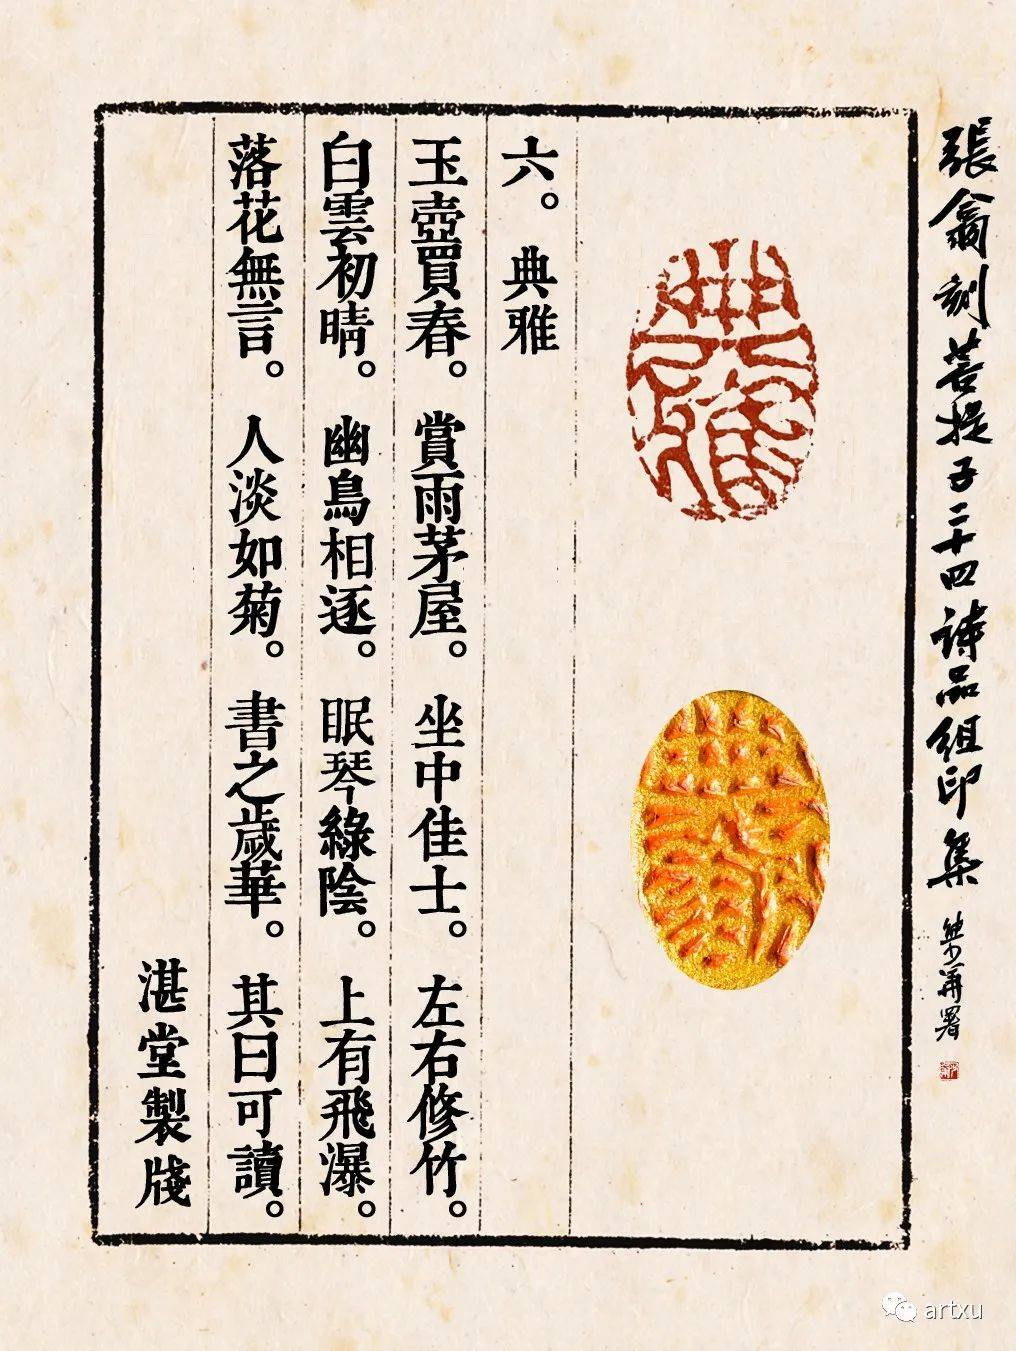 張翕刻菩提子二十四詩品組印集
署
典雅
六。典雅
玉壺買春。賞雨茅屋。坐中佳士。左右修竹。
白雲初晴。幽鳥相逐。眠琴綠陰。上有飛瀑。
落花無言。人淡如菊。書之歲華。其曰可讀。
湛堂製牋
artxu